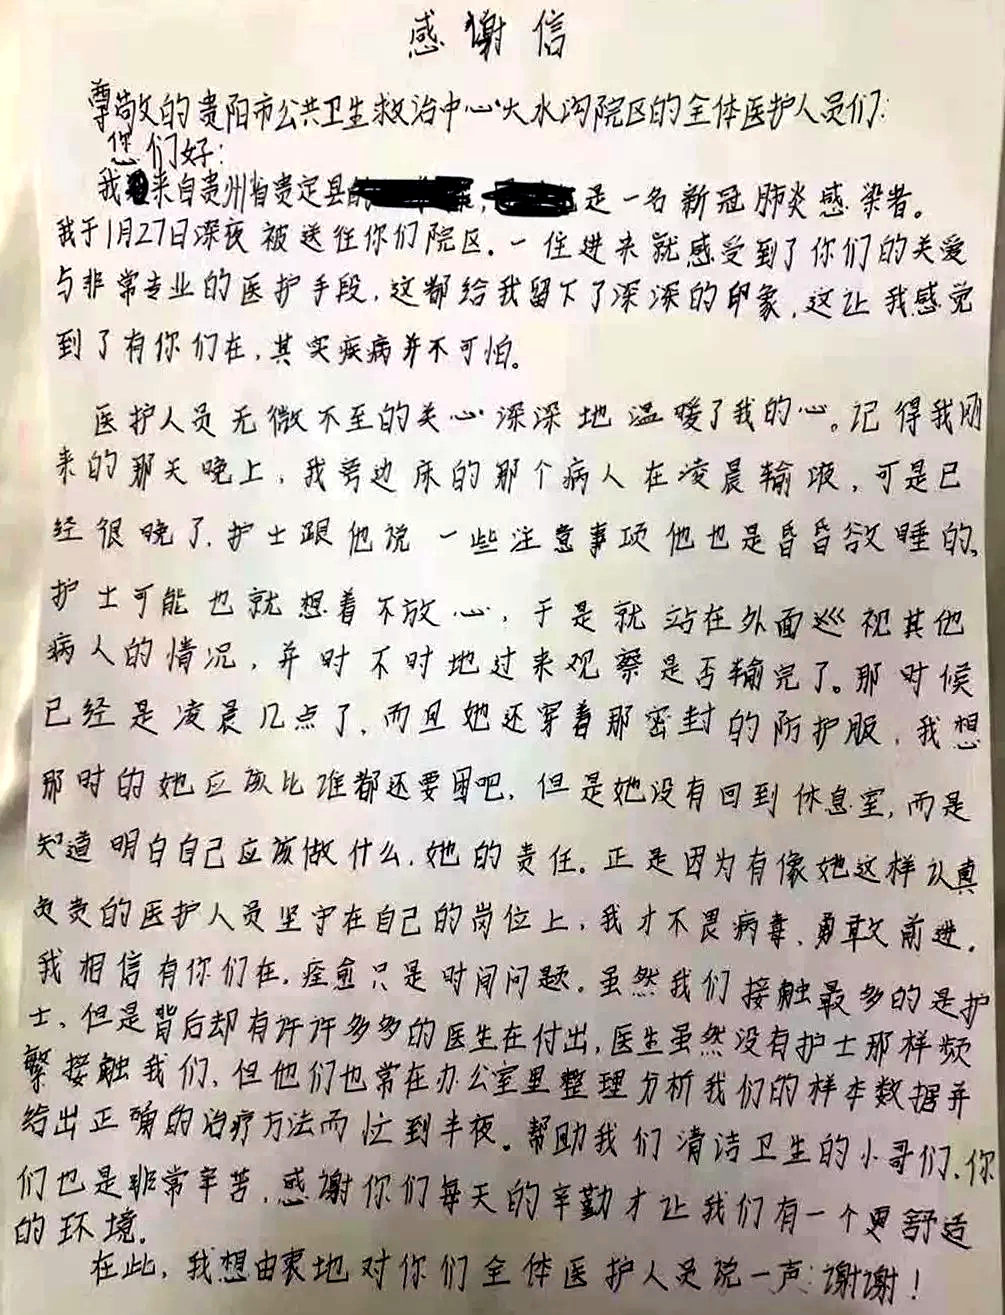 感谢信
尊敬的贵阳市公共卫生救治中心大水沟院区的全体医护人员们:
您们好:
我来自贵州省贵定县的 , 是一名新冠肺炎感染者。
我于1月27日深夜被送往你们院区。一住进来就感受到了你们的关爱
与非常专业的医护手段,这都给我留下了深深的印象,这让我感觉
到了有你们在,其实疾病并不可怕。
医护人员无微不至的关心深深地温暖了我的心。记得我刚
来的那天晚上,我旁边床的那个病人在凌晨输液,可是已
经很晚了,护士跟他说一些注意事项他也是昏昏欲睡的、
护士可能也就想着不放心,于是就站在外面巡视其他
病人的情况,并时不时地过来观察是否输完了。那时候
已经是凌晨几点了,而且她还穿着那密封的防护服,我想
那时的她应该比谁都还要困吧,但是她没有回到休息室,而是
知道明白自己应该做什么,她的责任。正是因为有像她这样认真
负责的医护人员坚守在自己的岗位上,我才不畏病毒、勇敢前进。
我相信有你们在,痊愈只是时间问题。虽然我们接触最多的是护
士,但是背后却有许许多多的医生在付出,医生虽然没有护士那样频
繁接触我们,但他们也常在办公室里整理分析我们的样本数据并
给出正确的治疗方法而忙到半夜。帮助我们清洁卫生的小哥们,你
们也是非常辛苦,感谢你们每天的辛勤才让我们有一个更舒适
的环境。
在此,我想由衷地对你们全体医护人员说一声:谢谢!